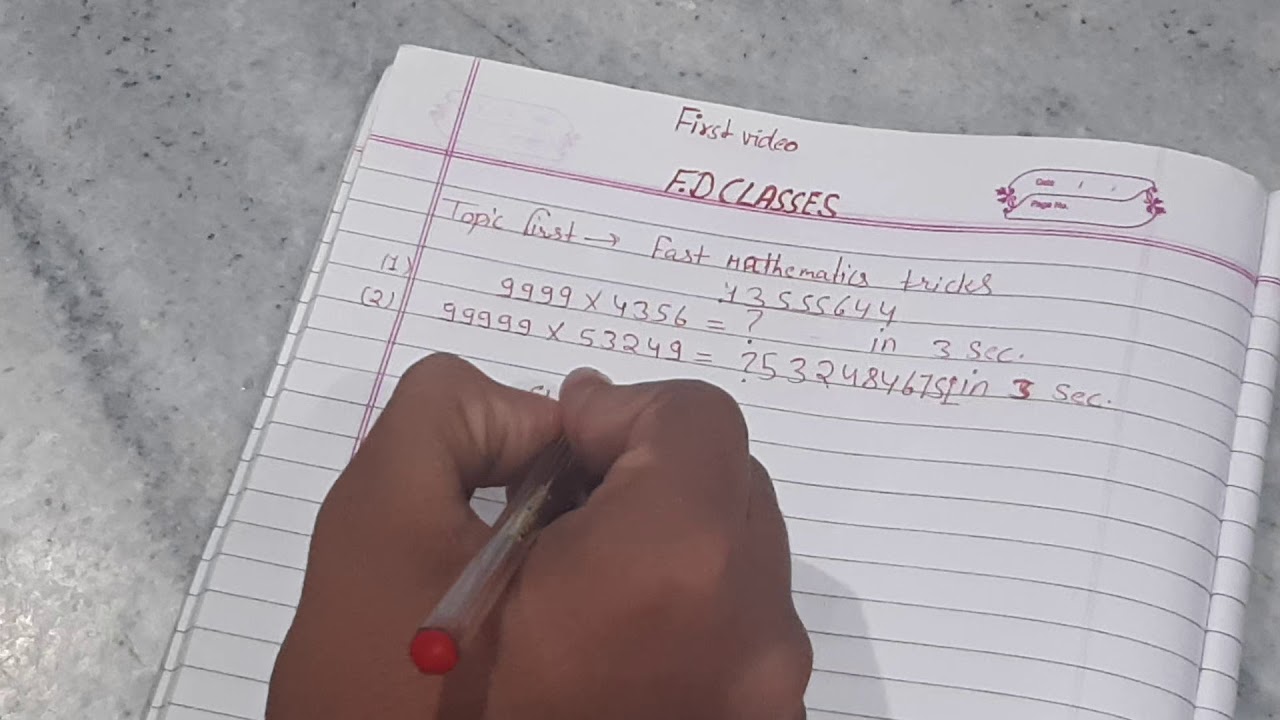 First video
F.D CLASSES
Date / /
Page No.
Topic first → Fast mathematics tricks
(1) 9999 × 4356 = ? 43555644 in 3 Sec.
(2) 99999 × 53249 = ? 5324846751 in 3 Sec.